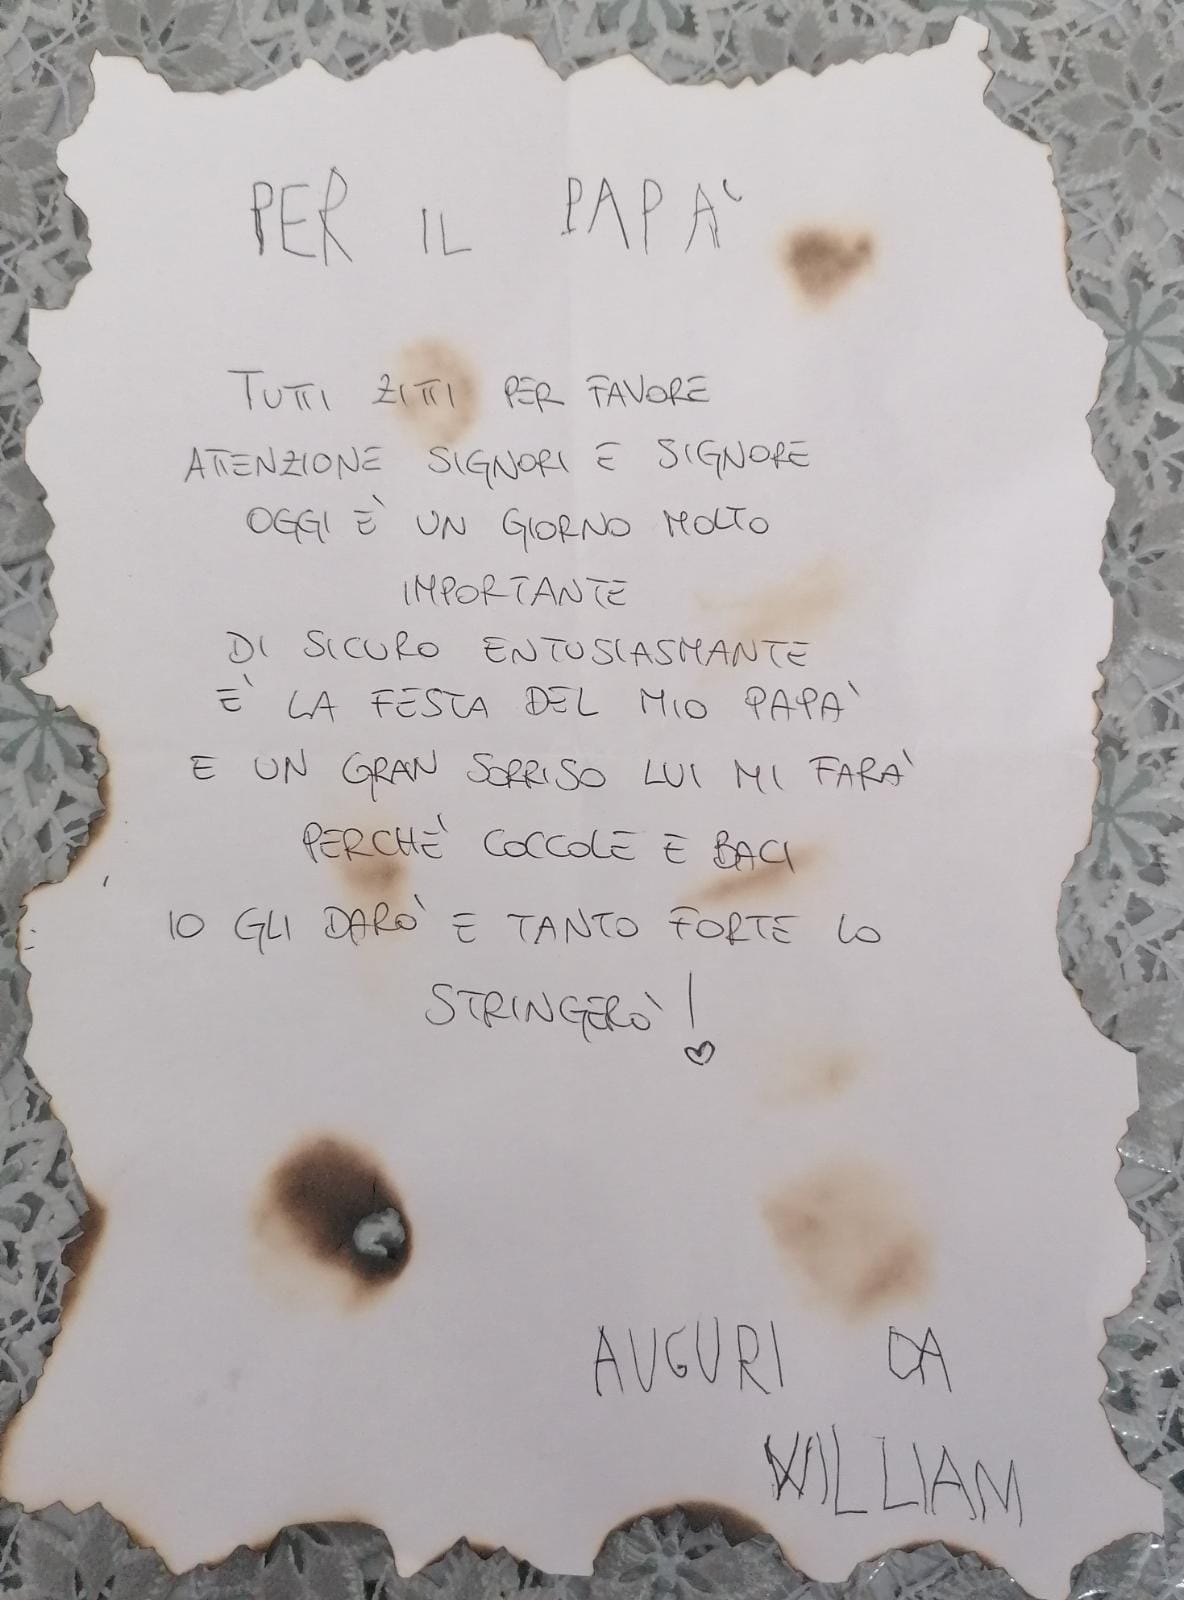 PER IL PAPA'
TUTTI ZITTI PER FAVORE
ATTENZIONE SIGNORI E SIGNORE
OGGI E' UN GIORNO MOLTO
IMPORTANTE
DI SICURO ENTUSIASMANTE
E' LA FESTA DEL MIO PAPA'
E UN GRAN SORRISO LUI MI FARA'
PERCHE' COCCOLE E BACI
IO GLI DARO' E TANTO FORTE LO
STRINGERO'!
AUGURI DA
WILLIAM